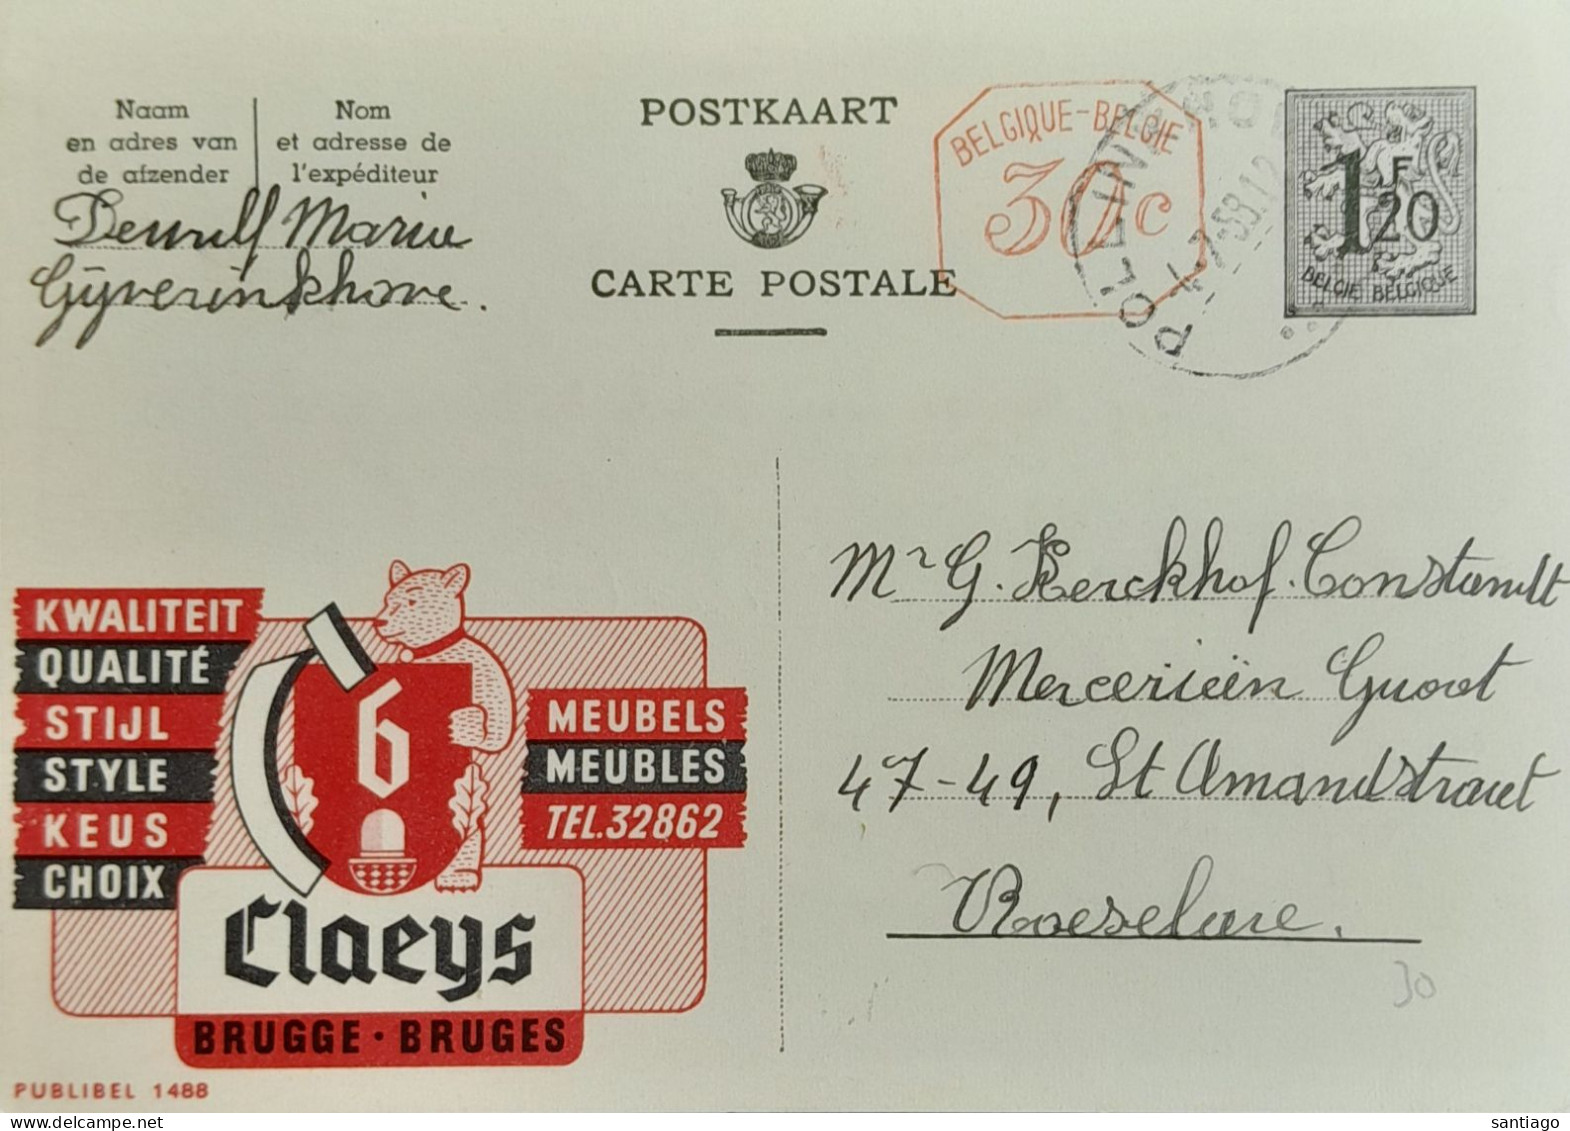 Naam
en adres van
de afzender
Nom
et adresse de
l'expéditeur
Dewulf Maria
Gyverinkhove.
POSTKAART
CARTE POSTALE
BELGIQUE-BELGIE
30 c
POLLINKHO
7-58.12
1F
20
BELGIE BELGIQUE
KWALITEIT
QUALITÉ
STIJL
STYLE
KEUS
CHOIX
6
MEUBELS
MEUBLES
TEL.32862
Claeys
BRUGGE · BRUGES
PUBLIBEL 1488
Mr G. Kerckhof. Constandt
Merceriëen Groot
47-49, St Amandstraat
Roeselare.
30
santiago